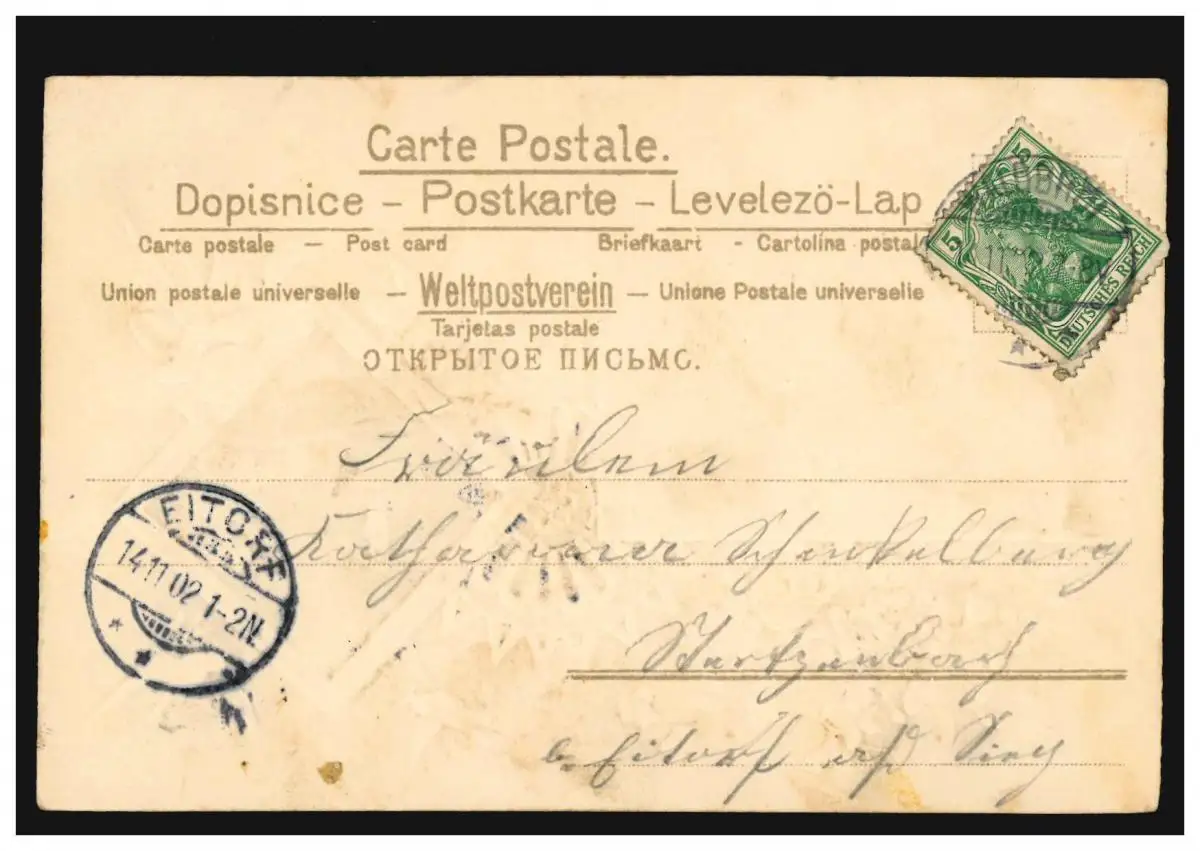 Carte Postale.
Dopisnice – Postkarte – Levelezö-Lap
Carte postale – Post card Briefkaart - Cartolina postale
Union postale universelle – Weltpostverein – Unione Postale universelle
Tarjetas postale
ОТКРЫТОЕ ПИСЬМО.
5 5
DEUTSCHES REICH
Fräulein
Katharina Schenkelberg
b. Eitorf a/d Sieg
EITORF
14.11.02 1-2N.